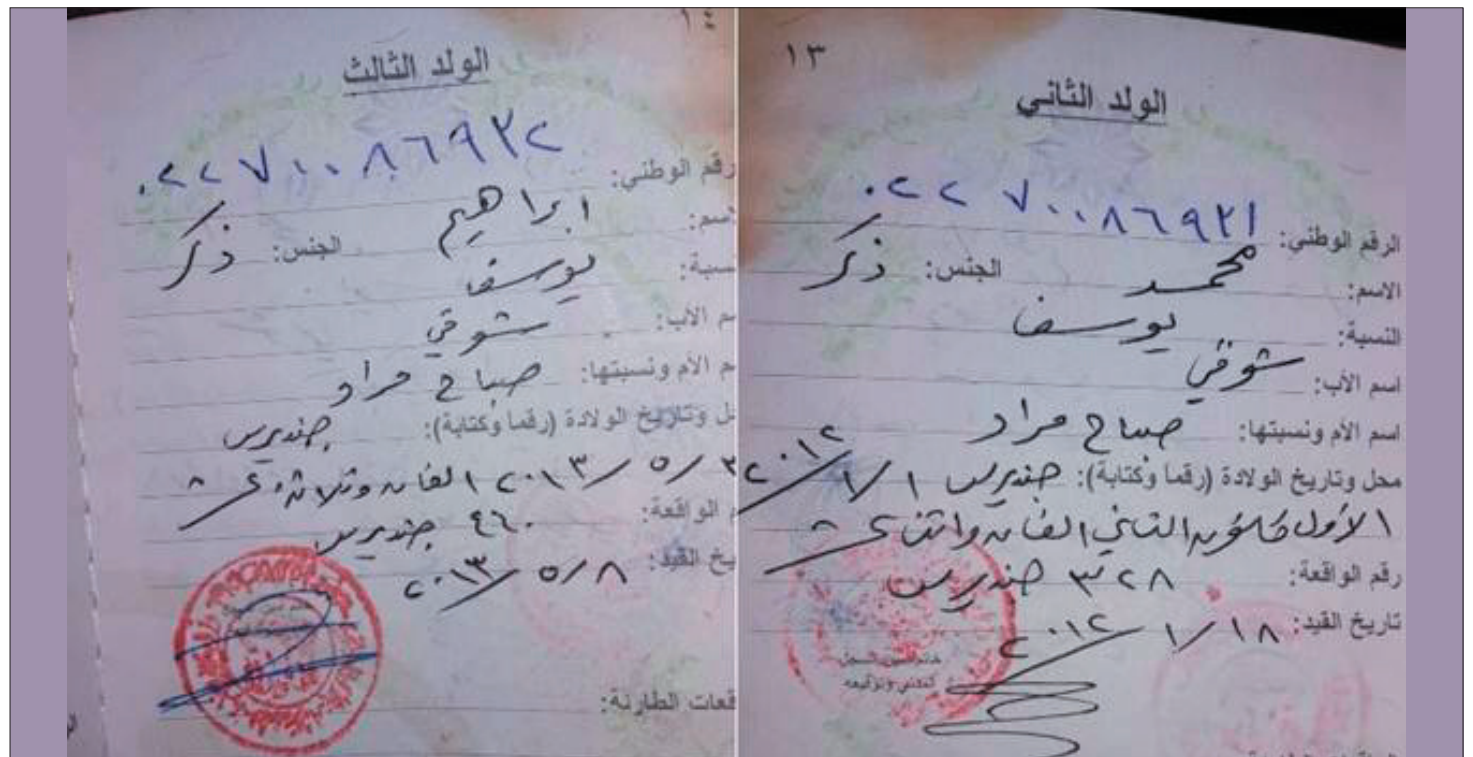 ١٣
الولد الثاني
الرقم الوطني: ٠٢٢٧٠٠٨٦٩٣١
الاسم: محمد الجنس: ذكر
النسبة: يوسف
اسم الأب: شوقي
اسم الأم ونسبتها: صباح مراد
محل وتاريخ الولادة (رقما وكتابة): جنديرس ١/١/٢٠١٢
الاول كانون الثاني الفان واثنا عشر
رقم الواقعة: ٣٢٨ جنديرس
تاريخ القيد: ١٨/١/٢٠١٢
خاتم أمين السجل
المدني وتوقيعه
١٤
الولد الثالث
رقم الوطني: ٠٢٢٧٠٠٨٦٩٣٢
اسم: ابراهيم الجنس: ذكر
نسبة: يوسف
م الأب: شوقي
م الأم ونسبتها: صباح مراد
ل وتاريخ الولادة (رقما وكتابة): جنديرس
/٥/٢٠١٣ الفان وثلاثة عشر
الواقعة: ٤٦٠ جنديرس
يخ القيد: ٨/٥/٢٠١٣
قعات الطارئة: